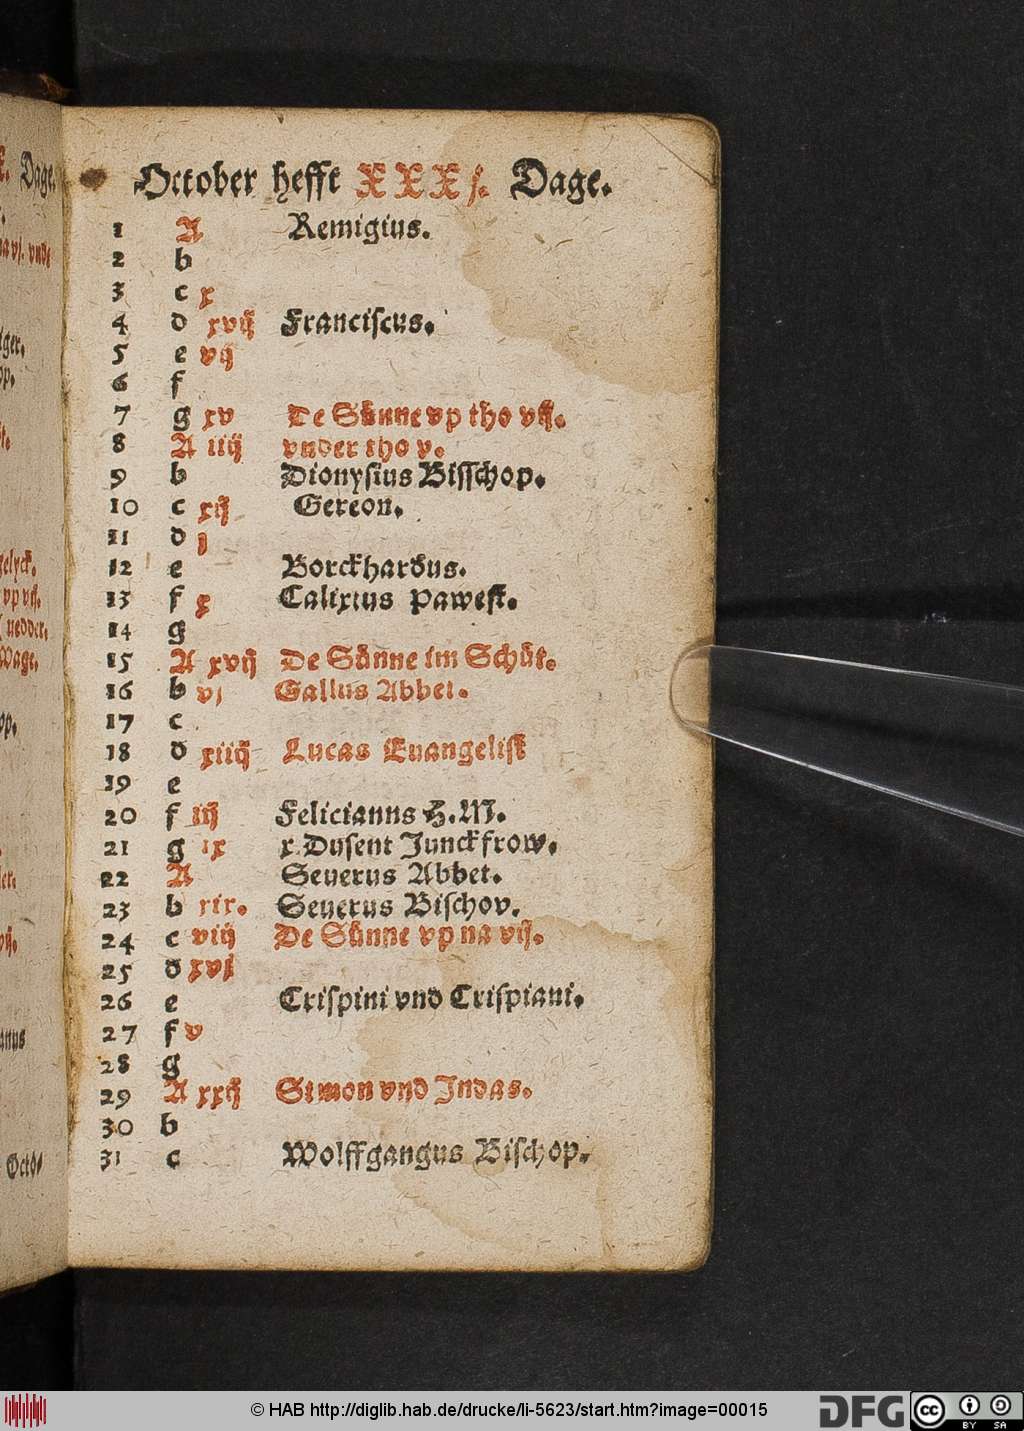 October hefft XXXj. Dage.
1 A Remigius.
2 b
3 c x
4 d xvij Franciscus.
5 e vij
6 f
7 g xv De Sünne vp tho vij.
8 A iiij vnder tho v.
9 b Dionysius Bisschop.
10 c xij Gereon.
11 d j
12 e Borckhardus.
13 f x Calixtus Pawest.
14 g
15 A xvij De Sünne im Schüt.
16 b vj Gallus Abbet.
17 c
18 d xiiij Lucas Euangelist
19 e
20 f iij Felicianns H. M.
21 g ix x. Dusent Junckfrow.
22 A Seuerus Abbet.
23 b xix. Seuerus Bischov.
24 c viij De Sünne vp na vij.
25 d xvj
26 e Crispini vnd Crispiani.
27 f v
28 g
29 A xxij Simon vnd Jndas.
30 b
31 c Wolffgangus Bischop.
© HAB http://diglib.hab.de/drucke/li-5623/start.htm?image=00015
DFG
cc BY SA